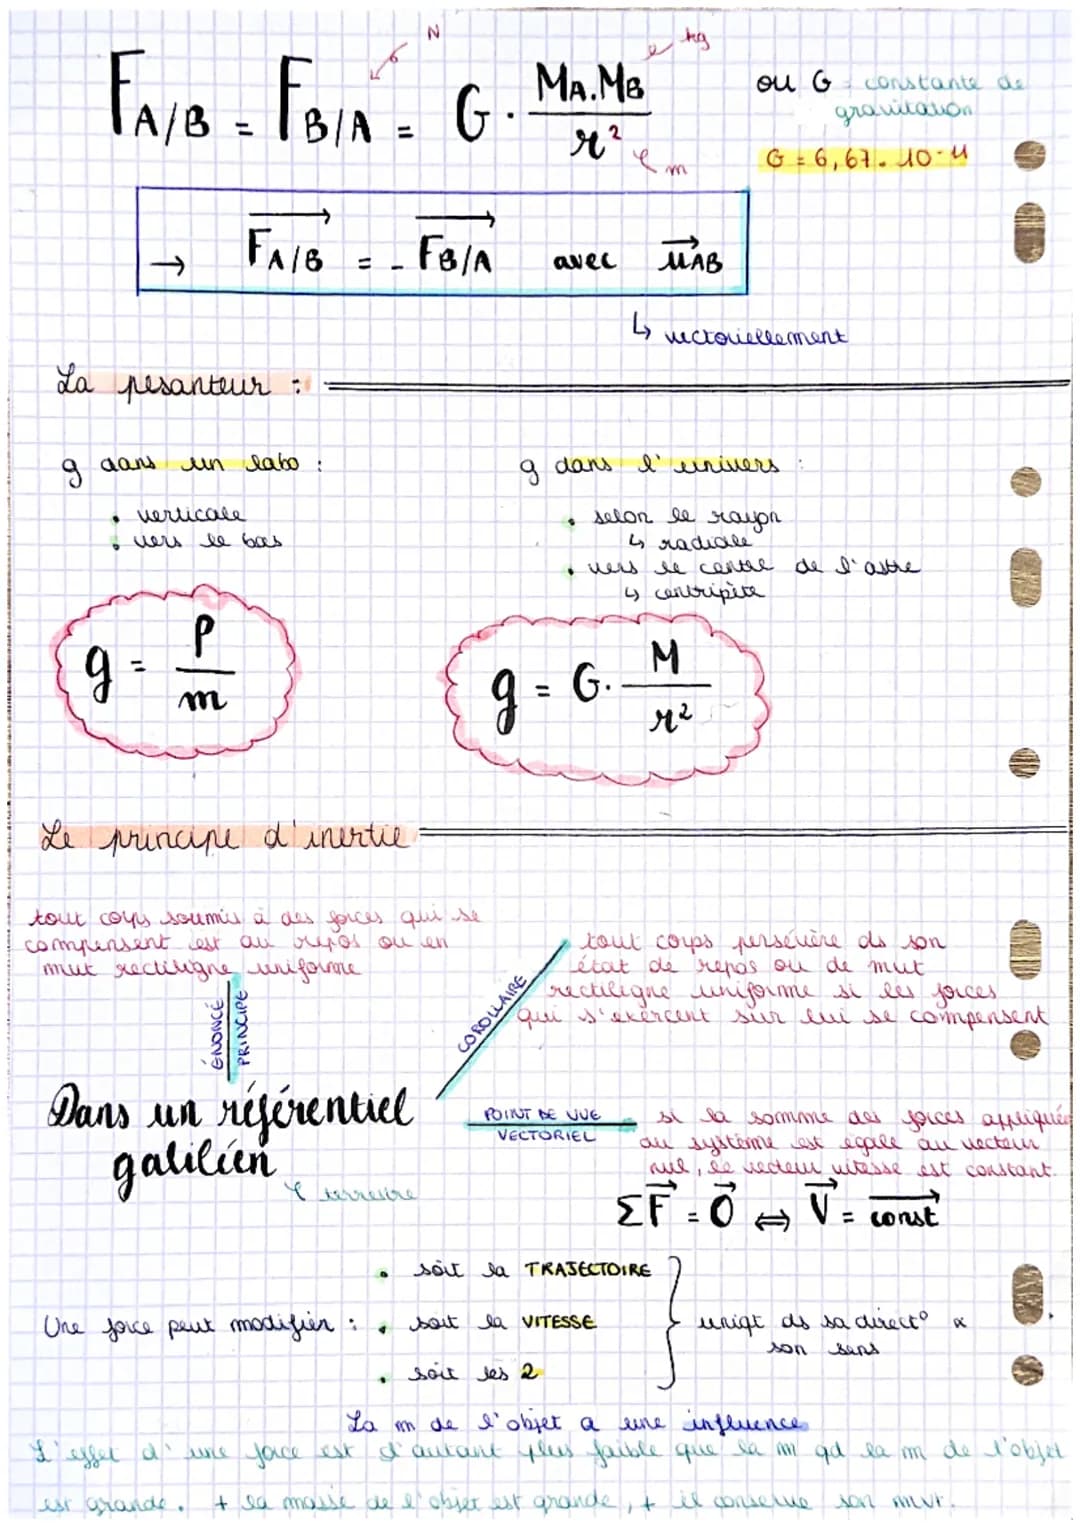 N
kg
F A/B = F B/A = G . MA.MB / r²
m
ou G = constante de
gravitation
G = 6,67. 10-11
→ F A/B = - F B/A avec u AB
↳ vectoriellement
La pesanteur :
g dans un labo :
• verticale
• vers le bas
g = P / m
g dans l'univers :
• selon le rayon
↳ radiale
• vers le centre de l'astre
↳ centripète
g = G. M / r²
Le principe d'inertie
tout corps soumis à des forces qui se
compensent est au repos ou en
mvt rectiligne uniforme
ÉNONCÉ
PRINCIPE
COROLLAIRE
tout corps persévère ds son
état de repos ou de mvt
rectiligne uniforme si les forces
qui s'exercent sur lui se compensent
Dans un référentiel
galiléen
terrestre
POINT DE VUE
VECTORIEL
si la somme des forces appliquées
au système est égale au vecteur
nul, le vecteur vitesse est constant.
ΣF = 0 ⇔ V = const
Une force peut modifier :
• soit la TRAJECTOIRE
• soit la VITESSE
• soit les 2
uniqt ds sa direct° &
son sens
La m de l'objet a une influence
L'effet d'une force est d'autant plus faible que la m qd la m de l'objet
est grande. + la masse de l'objet est grande, + il conserve son mvt.